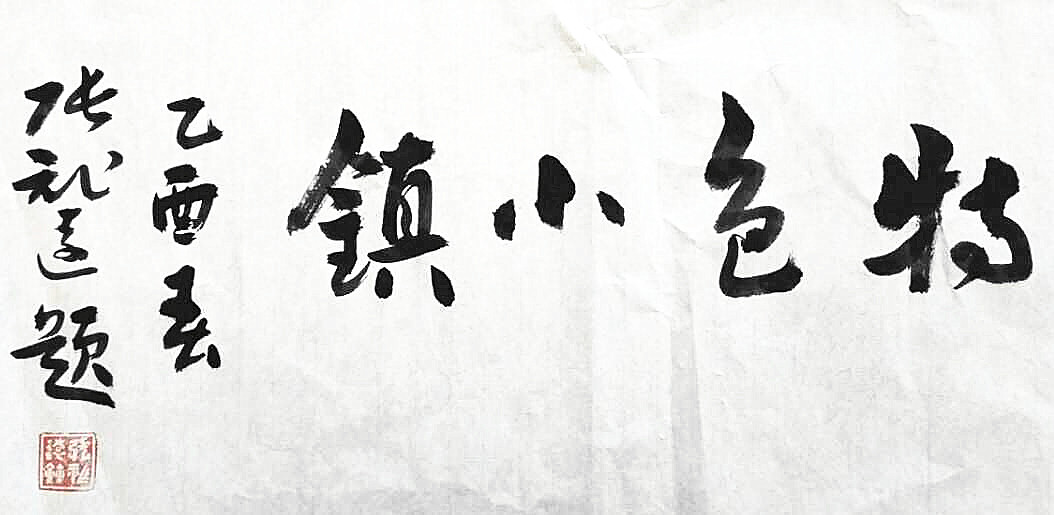 特色小鎮
乙酉春
张礼遠题